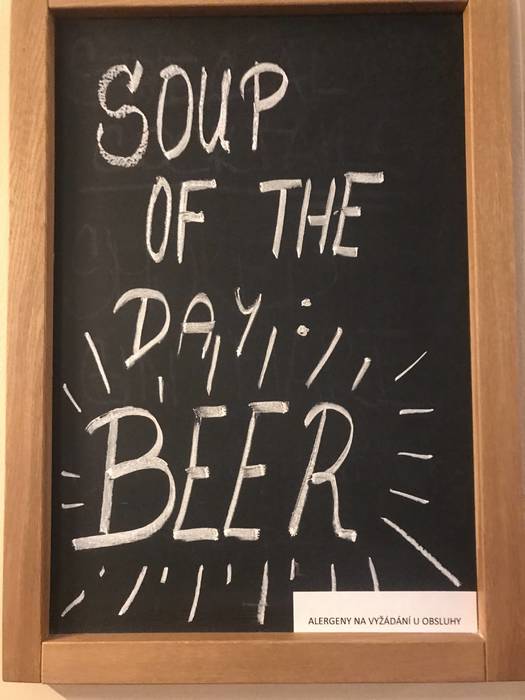 SOUP
OF THE
DAY:
BEER
ALERGENY NA VYŽÁDÁNÍ U OBSLUHY